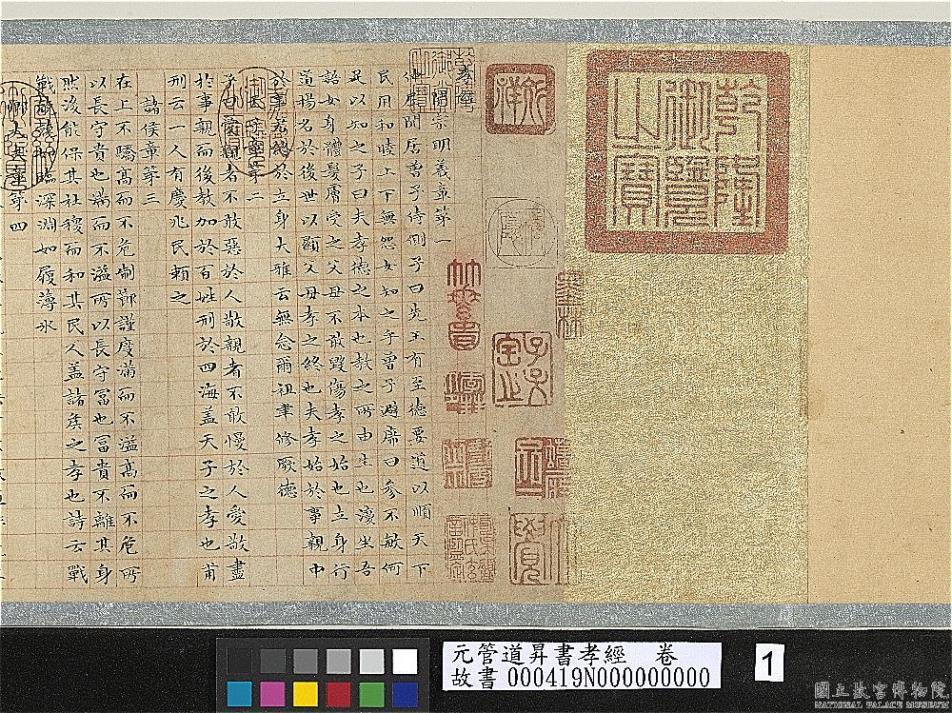 乾隆御覽之寶
乾隆
孝經
開宗明義章第一
仲尼閒居曾子侍側子曰先王有至德要道以順天下
民用和睦上下無怨女知之乎曾子避席曰參不敏何
足以知之子曰夫孝德之本也教之所由生也復坐吾
語女身體髮膚受之父母不敢毀傷孝之始也立身行
道揚名於後世以顯父母孝之終也夫孝始於事親中
於事君終於立身大雅云無念爾祖聿修厥德
天子章第二
子曰愛親者不敢惡於人敬親者不敢慢於人愛敬盡
於事親而後教加於百姓刑於四海盖天子之孝也甫
刑云一人有慶兆民賴之
諸侯章第三
在上不驕高而不危制節謹度滿而不溢高而不危所
以長守貴也滿而不溢所以長守富也富貴不離其身
然後能保其社稷而和其民人盖諸侯之孝也詩云戰
戰兢兢如臨深淵如履薄冰
卿大夫章第四
元管道昇書孝經 卷
故書 000419N000000000
1
國立故宮博物院
NATIONAL PALACE MUSEUM